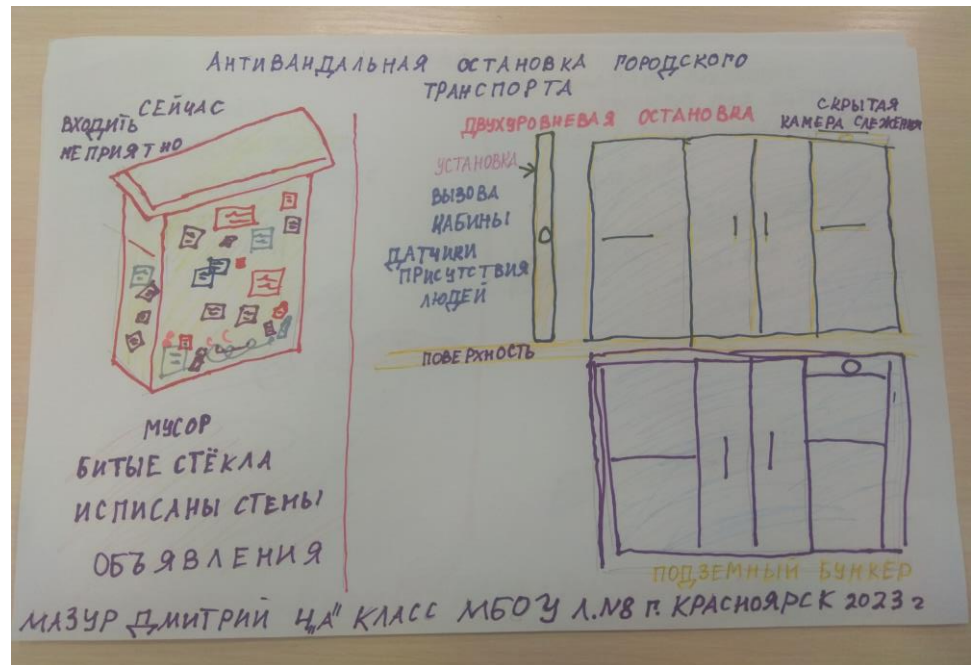 АНТИВАНДАЛЬНАЯ ОСТАНОВКА ГОРОДСКОГО
ТРАНСПОРТА
СЕЙЧАС
ВХОДИТЬ
НЕПРИЯТНО
МУСОР
БИТЫЕ СТЁКЛА
ИСПИСАНЫ СТЕНЫ
ОБЪЯВЛЕНИЯ
ДВУХУРОВНЕВАЯ ОСТАНОВКА
СКРЫТАЯ
КАМЕРА СЛЕЖЕНИЯ
УСТАНОВКА
ВЫЗОВА
КАБИНЫ
ДАТЧИКИ
ПРИСУТСТВИЯ
ЛЮДЕЙ
ПОВЕРХНОСТЬ
ПОДЗЕМНЫЙ БУНКЕР
МАЗУР ДМИТРИЙ 4„А" КЛАСС МБОУ Л.N8 Г. КРАСНОЯРСК 2023 г